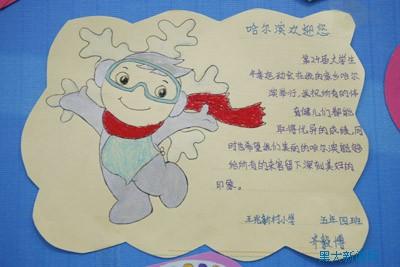 哈尔滨欢迎您
第24届大学生
冬季运动会在我的家乡哈尔
滨举行，我祝所有的体
育健儿们都能
取得优异的成绩，同
时也希望我们美丽的哈尔滨能够
给所有的来客留下深刻美好的
印象。
王兆新村小学 五年四班
齐毅博
黑大新闻